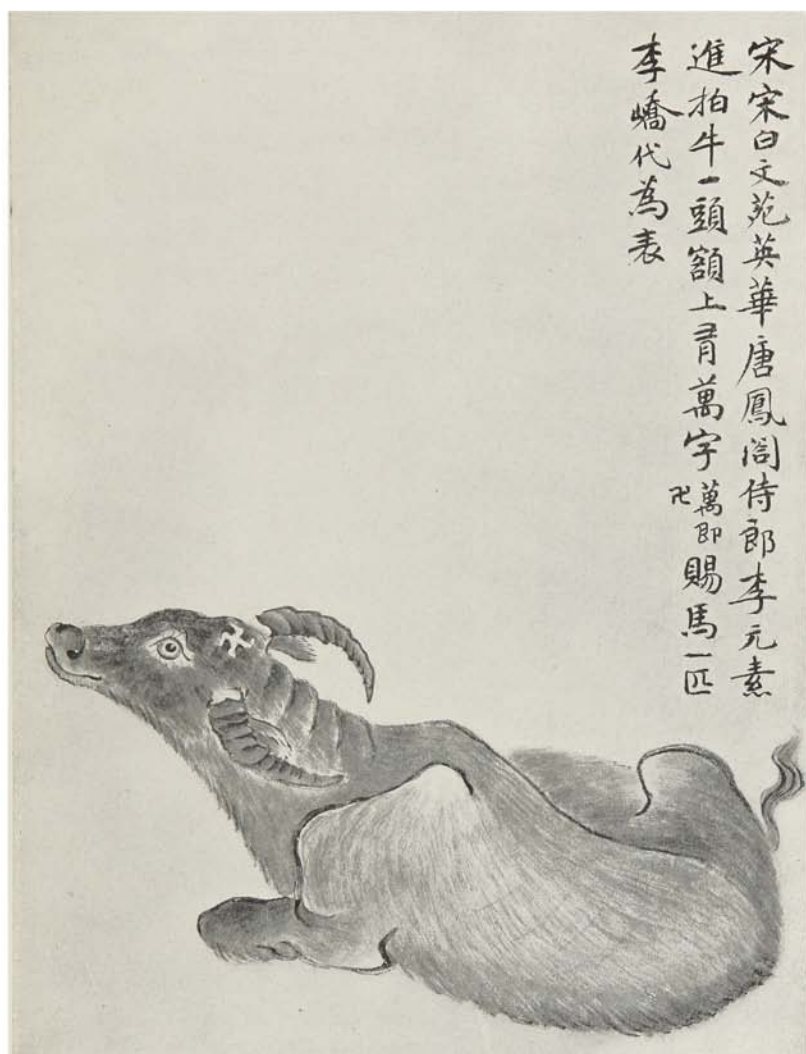 宋宋白文苑英華唐鳳閣侍郎李元素
進拍牛一頭額上有萬字萬即卍賜馬一匹
李嶠代為表